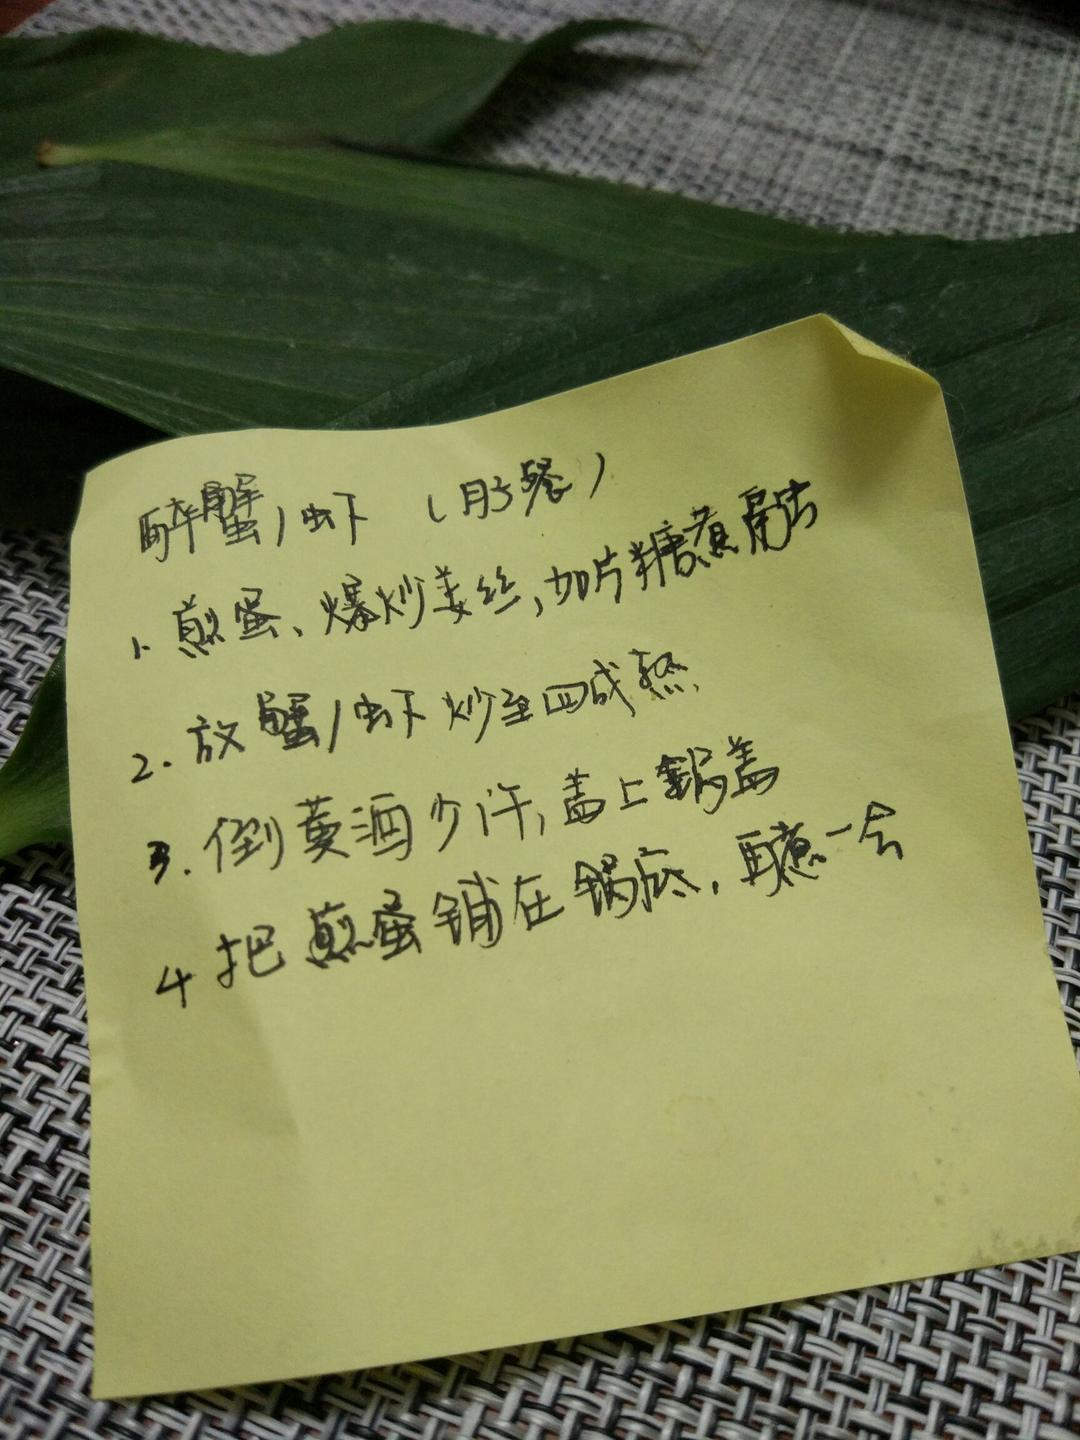 醉蟹/虾 (月子餐)
1. 煎蛋、爆炒姜丝,加片糖煮
2. 放蟹/虾炒至四成熟
3. 倒黄酒少许,盖上锅盖
4 把煎蛋铺在锅底,再煮一会